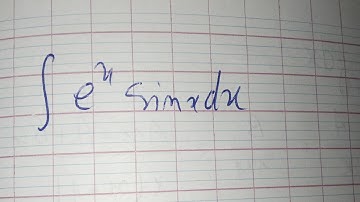 ∫ eˣ sinx dx